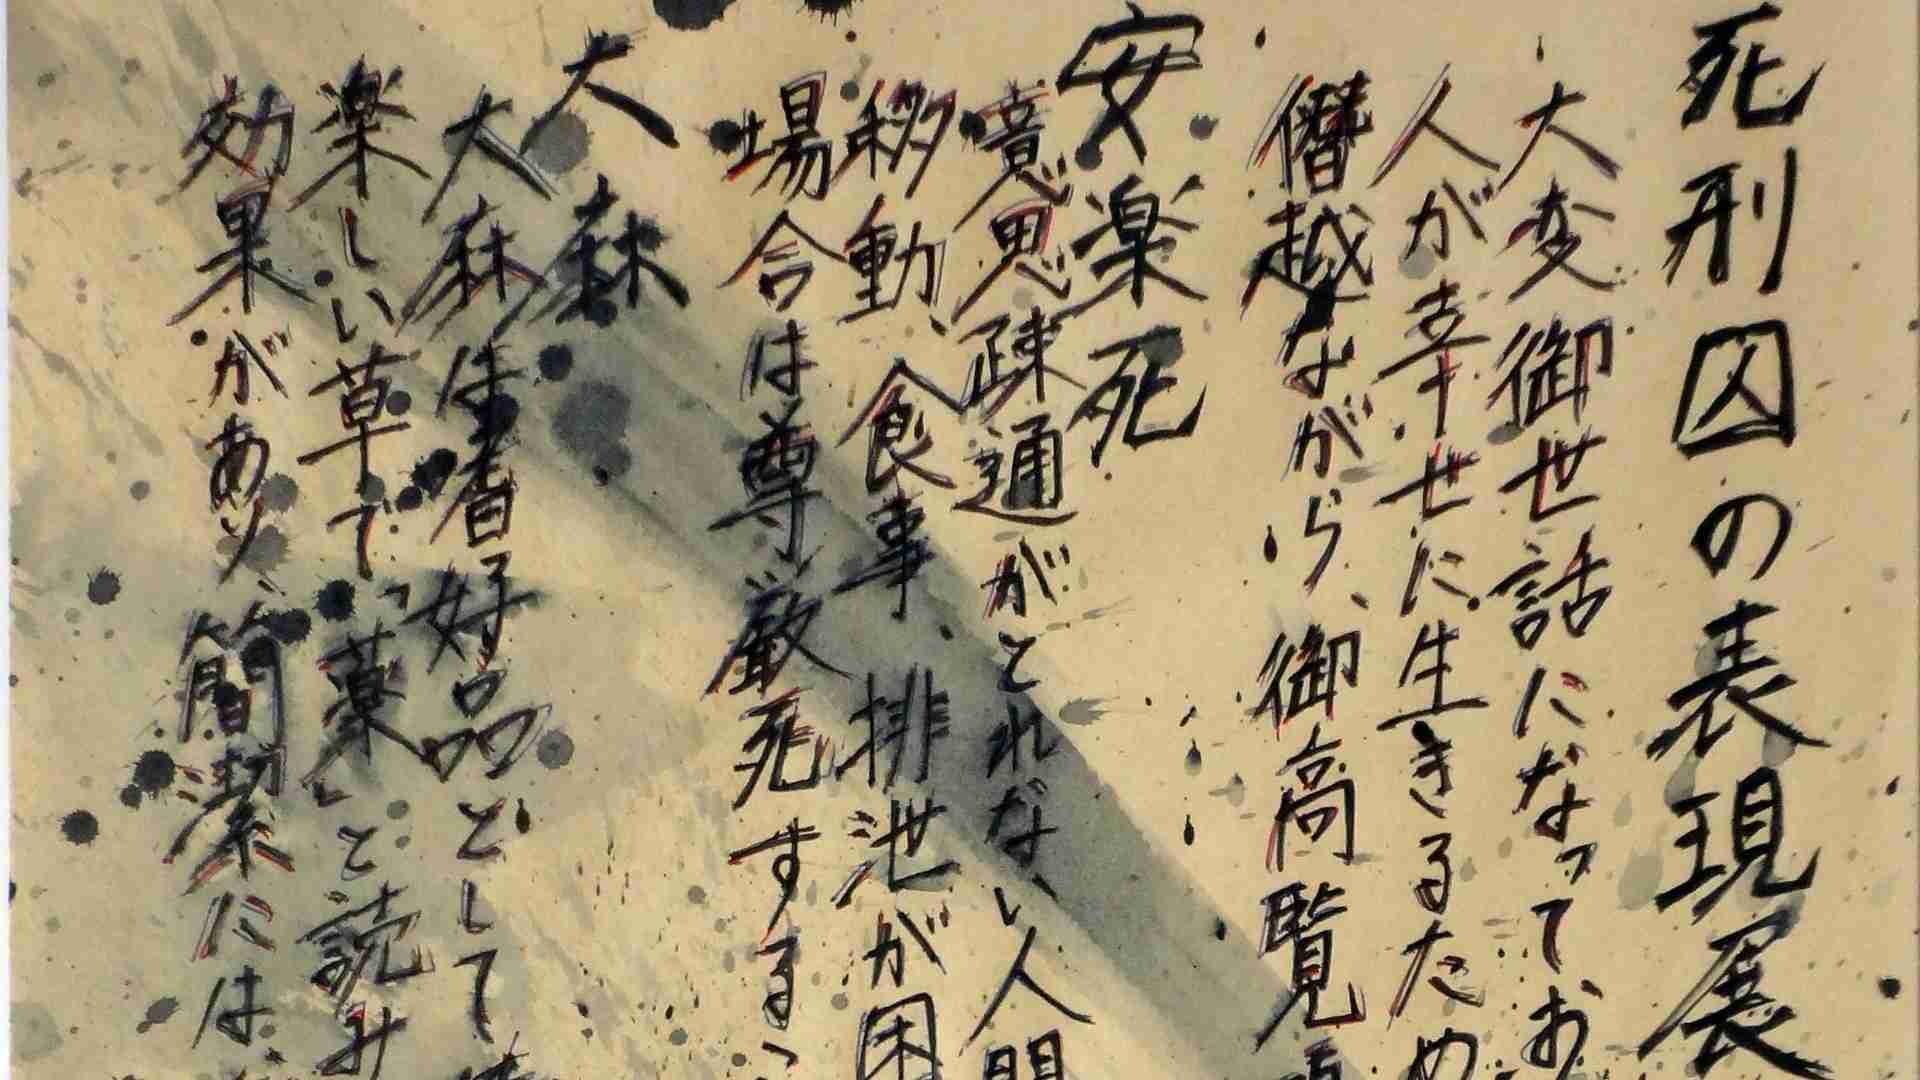 死刑囚の表現展
大変御世話になって、お
人が幸せに生きるため
僭越ながら、御高覧
安楽死
意思疎通がとれない人間
移動、食事、排泄が困
場合は尊厳死する
大麻
大麻は嗜好品として
楽しい草で、「薬」と読み
効果があり、簡潔には、